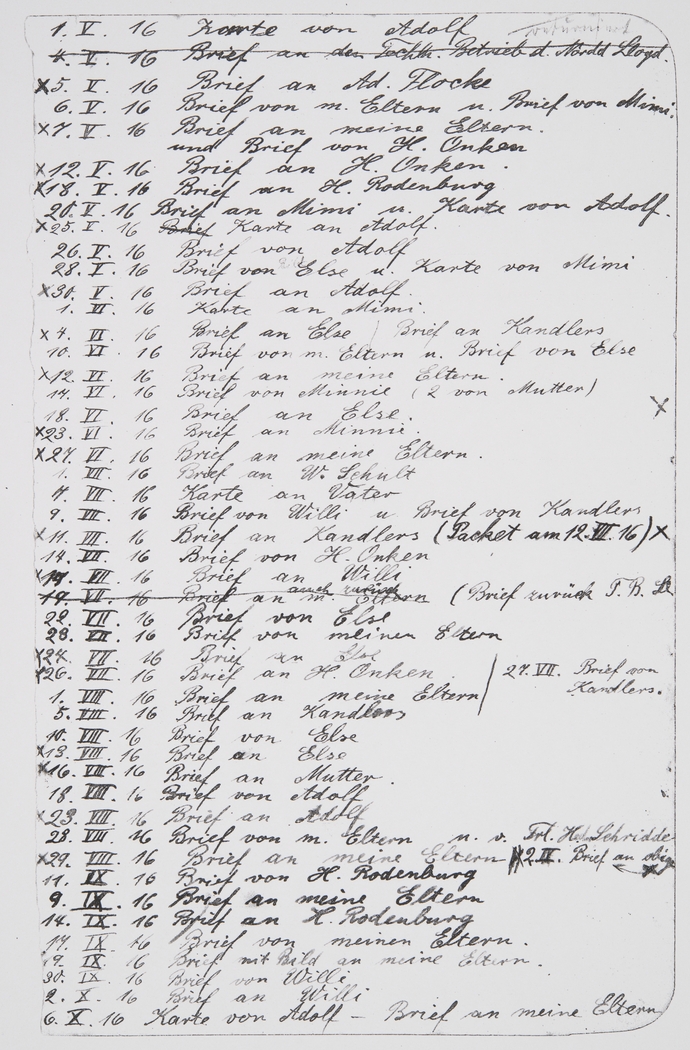 1. V. 16 Karte von Adolf returniert
4. V. 16 Brief an den Techn. Betrieb d. Nordd Lloyd.
x5. V. 16 Brief an Ad. Flocke
6. V. 16 Brief von m. Eltern u. Brief von Mimi.
x7. V. 16 Brief an meine Eltern.
und Brief von H. Onken
x12. V. 16 Brief an H. Onken.
x18. V. 16 Brief an H. Rodenburg
20. V. 16 Brief an Mimi u. Karte von Adolf.
x25. V. 16 Brief Karte an Adolf.
26. V. 16 Brief von Adolf
28. V. 16 Brief von Else u. Karte von Mimi
x30. V. 16 Brief an Adolf.
1. VI. 16 Karte an Mimi.
x4. VI. 16 Brief an Else / Brief an Kandlers
10. VI. 16 Brief von m. Eltern u. Brief von Else
x12. VI. 16 Brief an meine Eltern.
14. VI. 16 Brief von Minnie (2 von Mutter)
18. VI. 16 Brief an Else. x
x23. VI. 16 Brief an Minnie.
x27. VI. 16 Brief an meine Eltern.
1. VII. 16 Brief an W. Schult
4. VII. 16 Karte an Vater
9. VII. 16 Brief von Willi u Brief von Kandlers
x11. VII. 16 Brief an Kandlers (Packet am 12. VII. 16) x
14. VII. 16 Brief von H. Onken
VII. 16 Brief an Willi
19. VII. 16 Brief an m. Eltern auch zurück (Brief zurück
22. VII. 16 Brief von Else
23. VII. 16 Brief von meinen Eltern
x24. VII. 16 Brief an Else
x26. VII. 16 Brief an H. Onken / 27. VII. Brief von Kandlers.
1. VIII. 16 Brief an meine Eltern
5. VIII. 16 Brief an Kandlers
10. VIII. 16 Brief von Else
x13. VIII. 16 Brief an Else
x16. VIII. 16 Brief an Mutter.
18. VIII. 16 Brief von Adolf
x23. VIII. 16 Brief an Adolf
28. VIII 16 Brief von m. Eltern u. v. Frl. Schridde
x29. VIII. 16 Brief an meine Eltern 2. IX. Brief an obige
11. IX. 16 Brief von H. Rodenburg
9. IX. 16 Brief an meine Eltern
14. IX. 16 Brief an H. Rodenburg
17. IX 16 Brief von meinen Eltern.
19. IX 16 Brief mit Bild an meine Eltern.
30. IX. 16 Brief von Willi
2. X. 16 Brief an Willi
6. X. 16 Karte von Adolf – Brief an meine Eltern